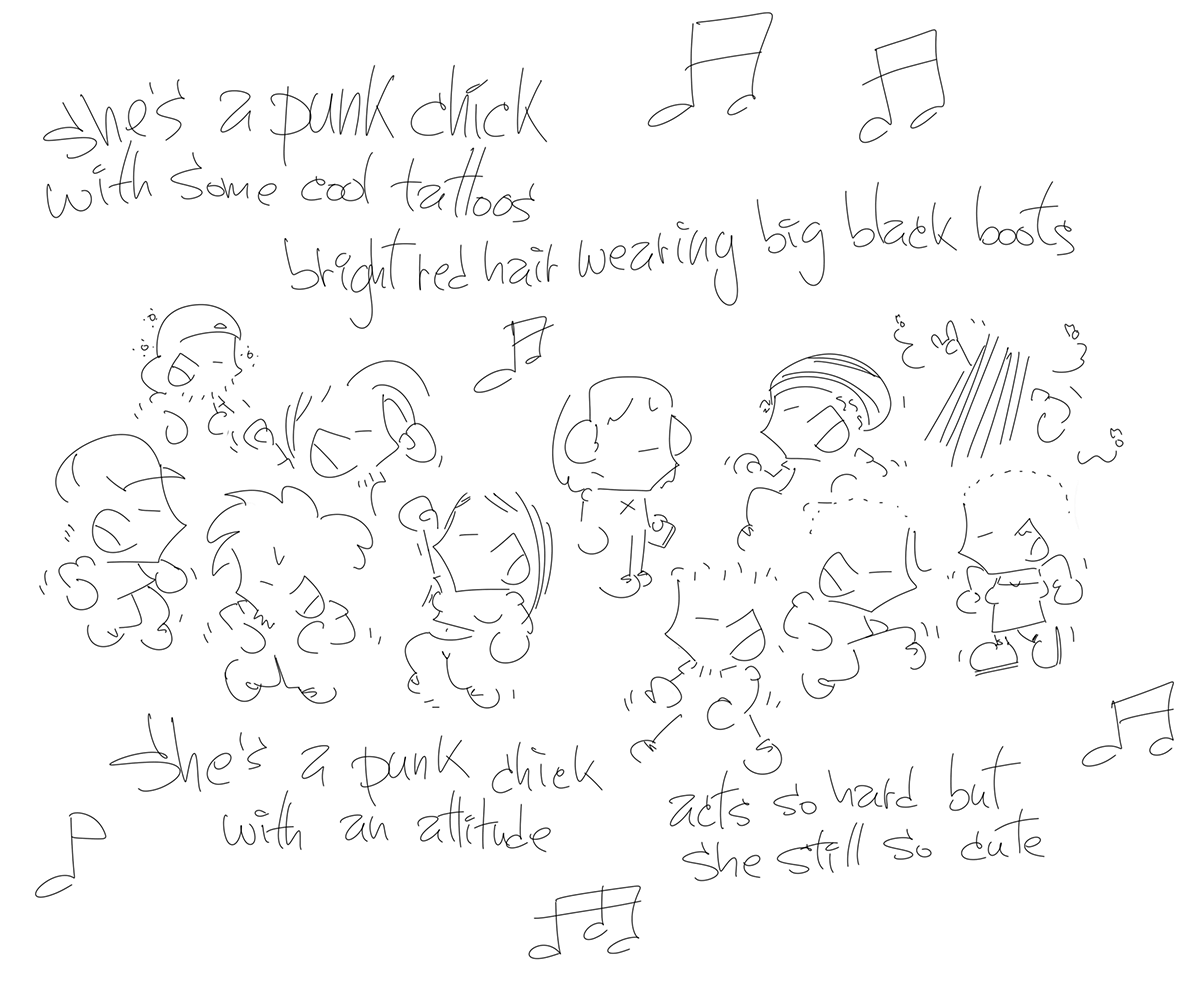 she's a punk chick
with some cool tattoos
bright red hair wearing big black boots
she's a punk chick
with an attitude
acts so hard but
she still so cute